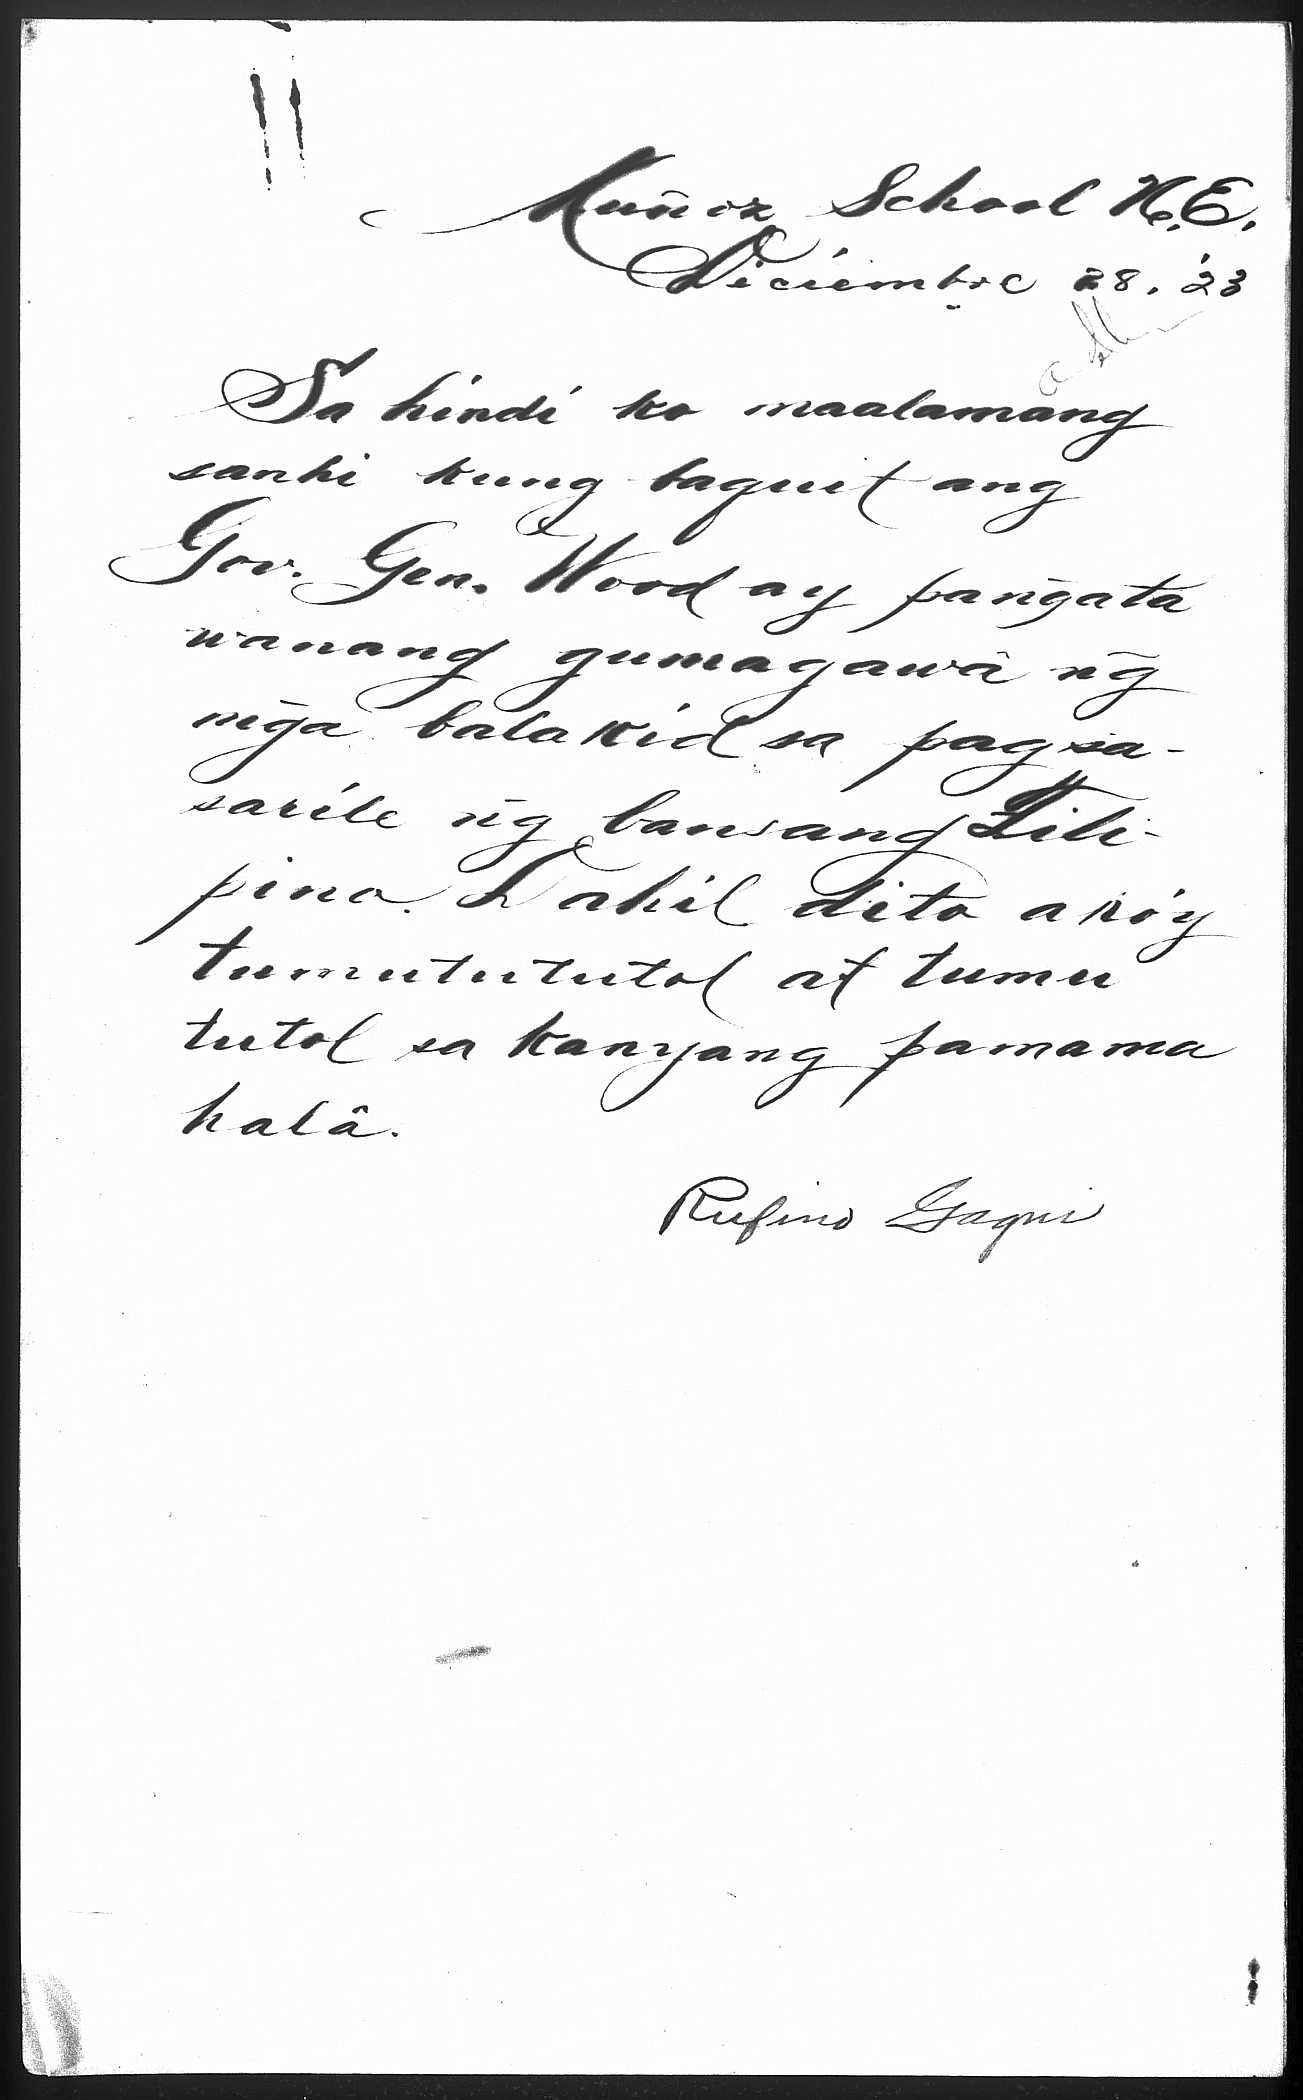 Muñoz School N.E.
Diciembre 28, '23
Sa hindi ko maalamang
sanhi kung baguit ang
Gov. Gen. Wood ay pañgata
wanang gumagawâ ñg
mḡa balakid sa pagsa-
sarile ñg bansang Fili-
pino. Dahil dito akóy
tumutututol at tumu
tutol sa kanyang pamama
halâ.
Rufino